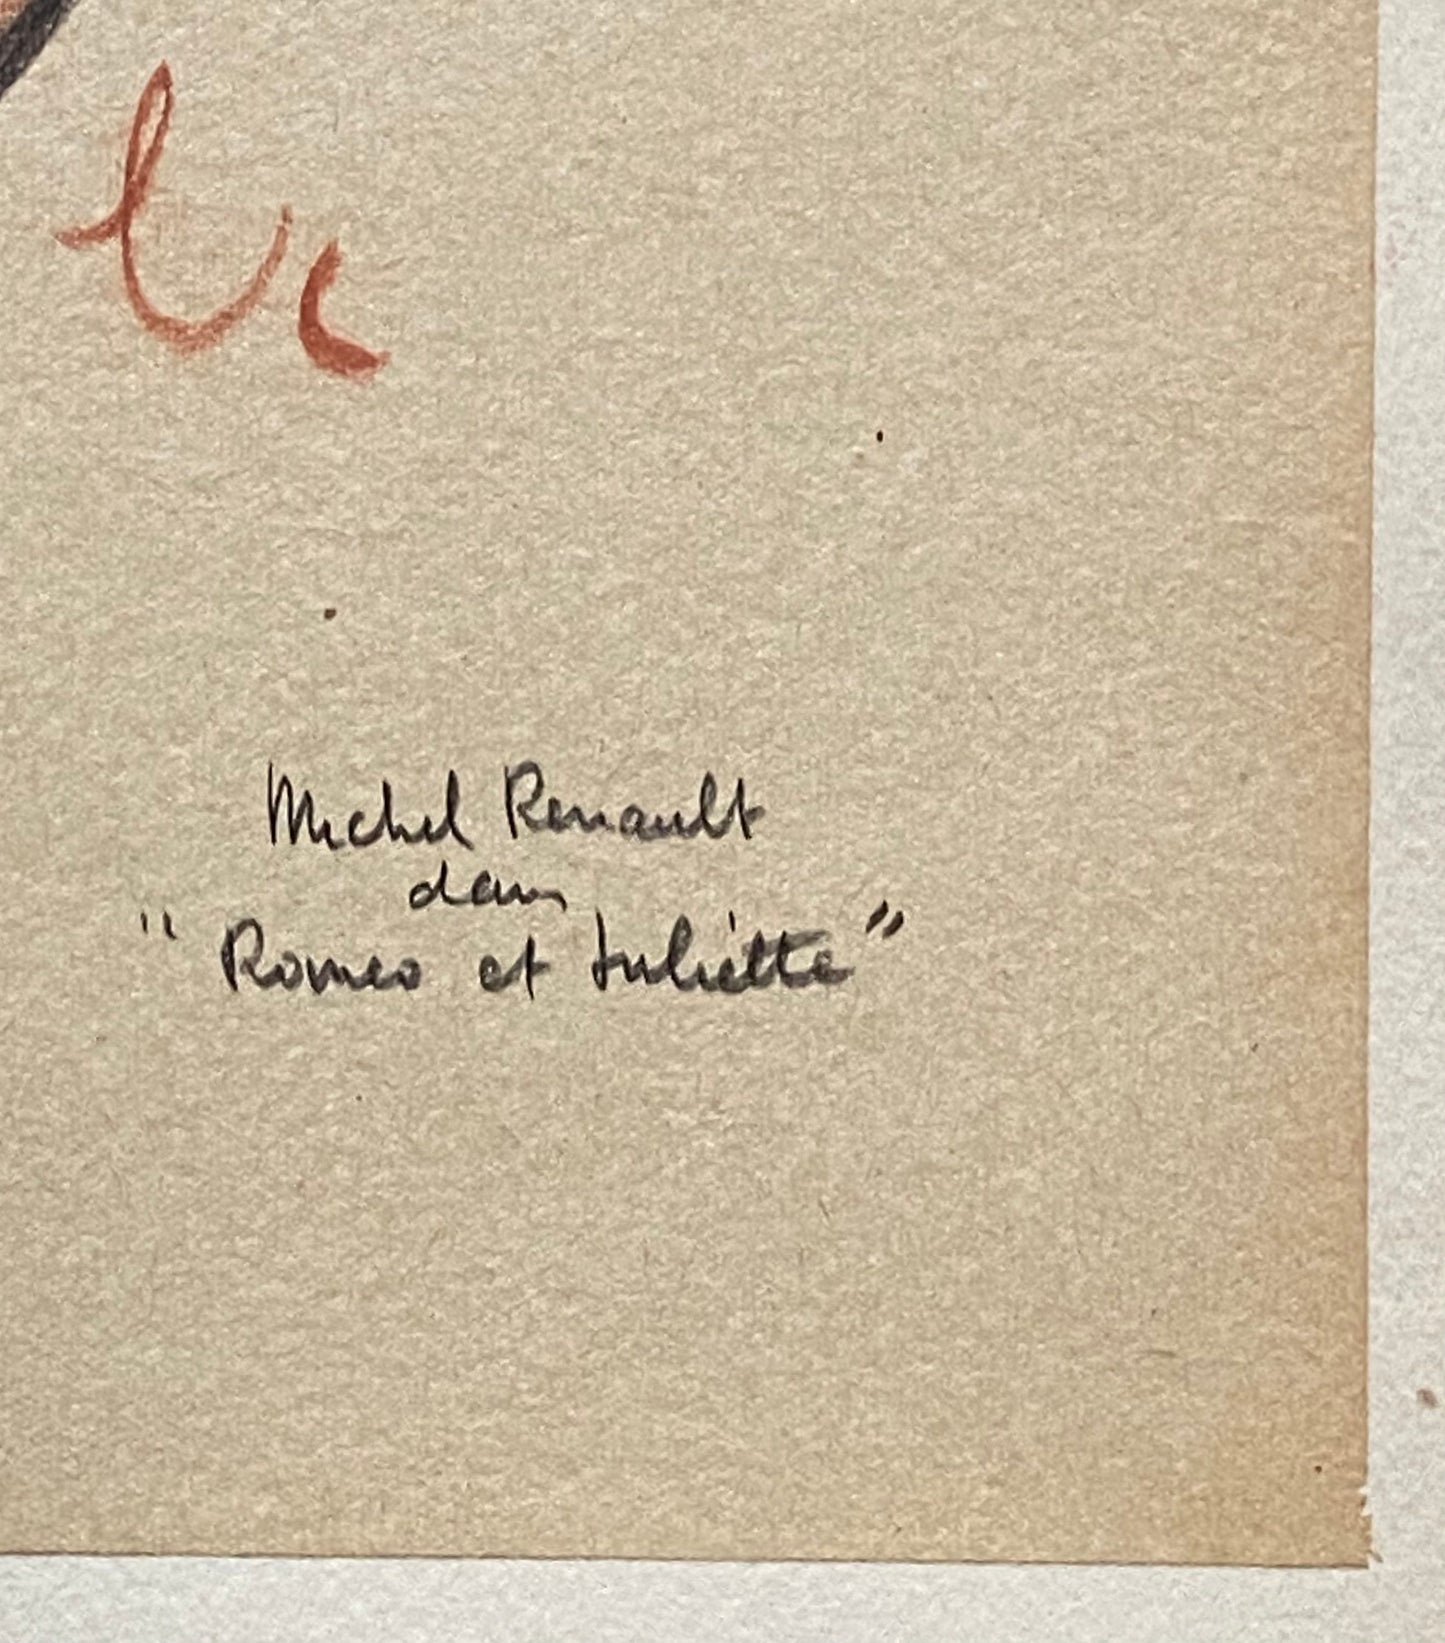 Michel Renault
dans
" Romeo et Juliette "